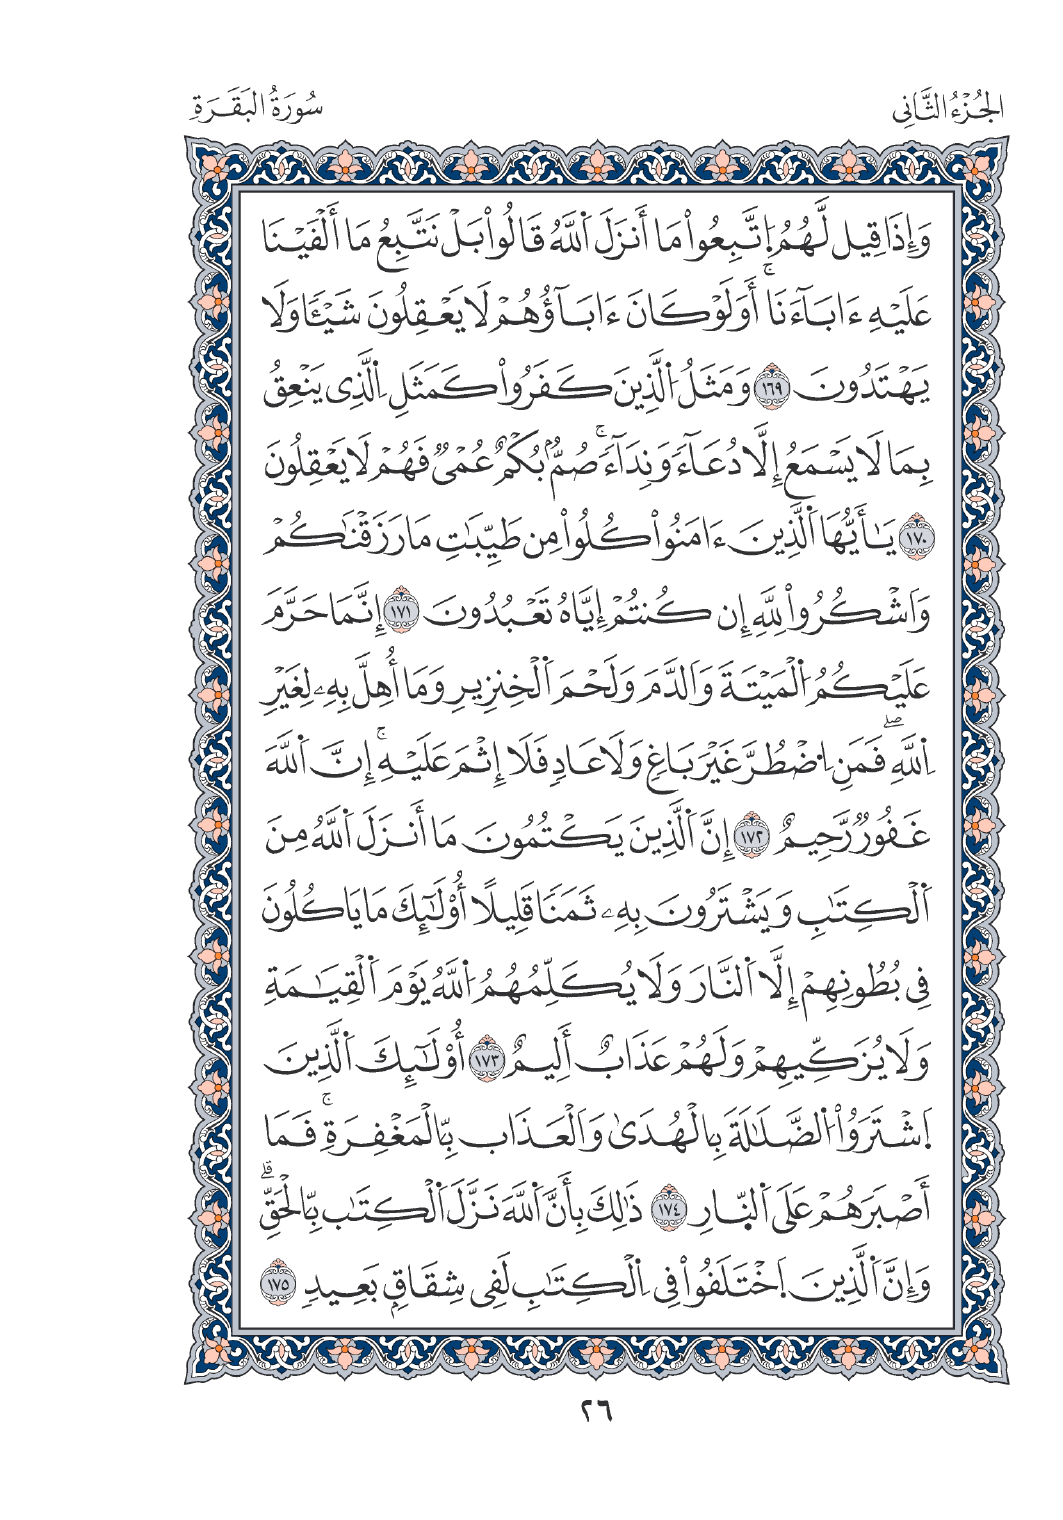 الجُزْءُ الثَّانِي
سُورَةُ البَقَرَةِ
وَإِذَا قِيلَ لَهُمُ اُ۪تَّبِعُواْ مَا أَنزَلَ اَ۬للَّهُ قَالُواْ بَلْ نَتَّبِعُ مَا أَلْفَيْنَا
عَلَيْهِ ءَابَآءَنَاۚ أَوَلَوْ كَانَ ءَابَآؤُهُمْ لَا يَعْقِلُونَ شَيْـٔٗا وَلَا
يَهْتَدُونَ ١٦٩ وَمَثَلُ اُ۬لَّذِينَ كَفَرُواْ كَمَثَلِ اِ۬لَّذِي يَنْعِقُ
بِمَا لَا يَسْمَعُ إِلَّا دُعَآءٗ وَنِدَآءٗۚ صُمُّۢ بُكْمٌ عُمْيٞ فَهُمْ لَا يَعْقِلُونَ
١٧٠ يَٰأَيُّهَا اَ۬لَّذِينَ ءَامَنُواْ كُلُواْ مِن طَيِّبَٰتِ مَا رَزَقْنَٰكُمْ
وَاَشْكُرُواْ لِلَّهِ إِن كُنتُمْ إِيَّاهُ تَعْبُدُونَ ١٧١ إِنَّمَا حَرَّمَ
عَلَيْكُمُ اُ۬لْمَيْتَةَ وَاَلدَّمَ وَلَحْمَ اَ۬لْخِنزِيرِ وَمَا أُهِلَّ بِهِۦ لِغَيْرِ
اِ۬للَّهِۖ فَمَنِ اِ۟ضْطُرَّ غَيْرَ بَاغٖ وَلَا عَادٖ فَلَا إِثْمَ عَلَيْهِۚ إِنَّ اَ۬للَّهَ
غَفُورٞ رَّحِيمٌ ١٧٢ إِنَّ اَ۬لَّذِينَ يَكْتُمُونَ مَا أَنزَلَ اَ۬للَّهُ مِنَ
اَ۬لْكِتَٰبِ وَيَشْتَرُونَ بِهِۦ ثَمَنٗا قَلِيلًا أُوْلَٰٓئِكَ مَا يَاكُلُونَ
فِي بُطُونِهِمْ إِلَّا اَ۬لنَّارَ وَلَا يُكَلِّمُهُمُ اُ۬للَّهُ يَوْمَ اَ۬لْقِيَٰمَةِ
وَلَا يُزَكِّيهِمْ وَلَهُمْ عَذَابٌ أَلِيمٌ ١٧٣ أُوْلَٰٓئِكَ اَ۬لَّذِينَ
اَ۪شْتَرَوُاْ اُ۬لضَّلَٰلَةَ بِالْهُدَىٰ وَاَلْعَذَاب بِّالْمَغْفِرَةِۚ فَمَا
أَصْبَرَهُمْ عَلَى اَ۬لنّ۪ارِ ١٧٤ ذَٰلِكَ بِأَنَّ اَ۬للَّهَ نَزَّلَ اَ۬لْكِتَٰب بِّالْحَقِّۗ
وَإِنَّ اَ۬لَّذِينَ اَ۪خْتَلَفُواْ فِي اِ۬لْكِتَٰبِ لَفِي شِقَاقِۭ بَعِيدٖ ١٧٥
٢٦